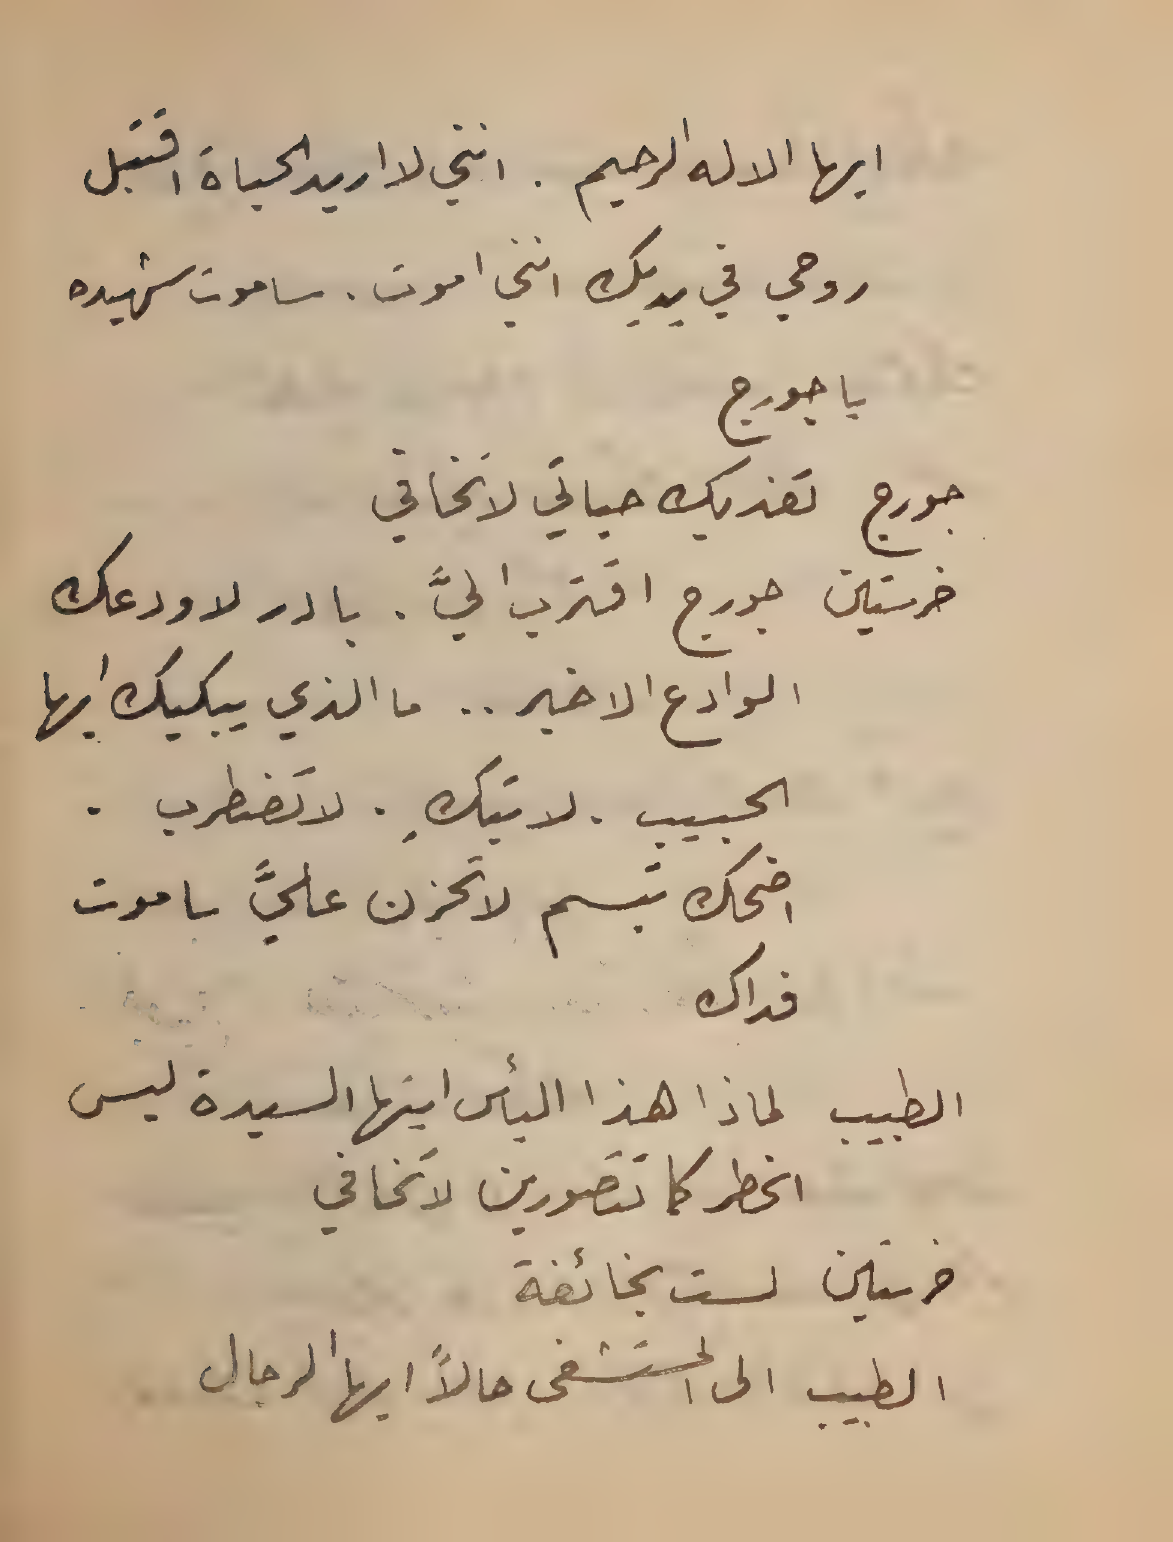 ايها الاله الرحيم . انني لا اريد الحياة اقتبل
روحي في يديك انني اموت . ساموت شهيده
يا جورج
جورج تفديك حياتي لا تخافي
خرستين جورج اقترب اليَّ . بادر لاودعك
الوادع الاخير .. ما الذي يبكيك ايها
الحبيب . لا تبكِ . لا تضطرب .
اضحك تبسم لا تحزن عليَّ ساموت
فداك
الطبيب لماذا هذا اليأس ايتها السيدة ليس
الخطر كما تتصورين لا تخافي
خرستين لست بخائفة
الطبيب الى المستشفى حالاً ايها الرجال